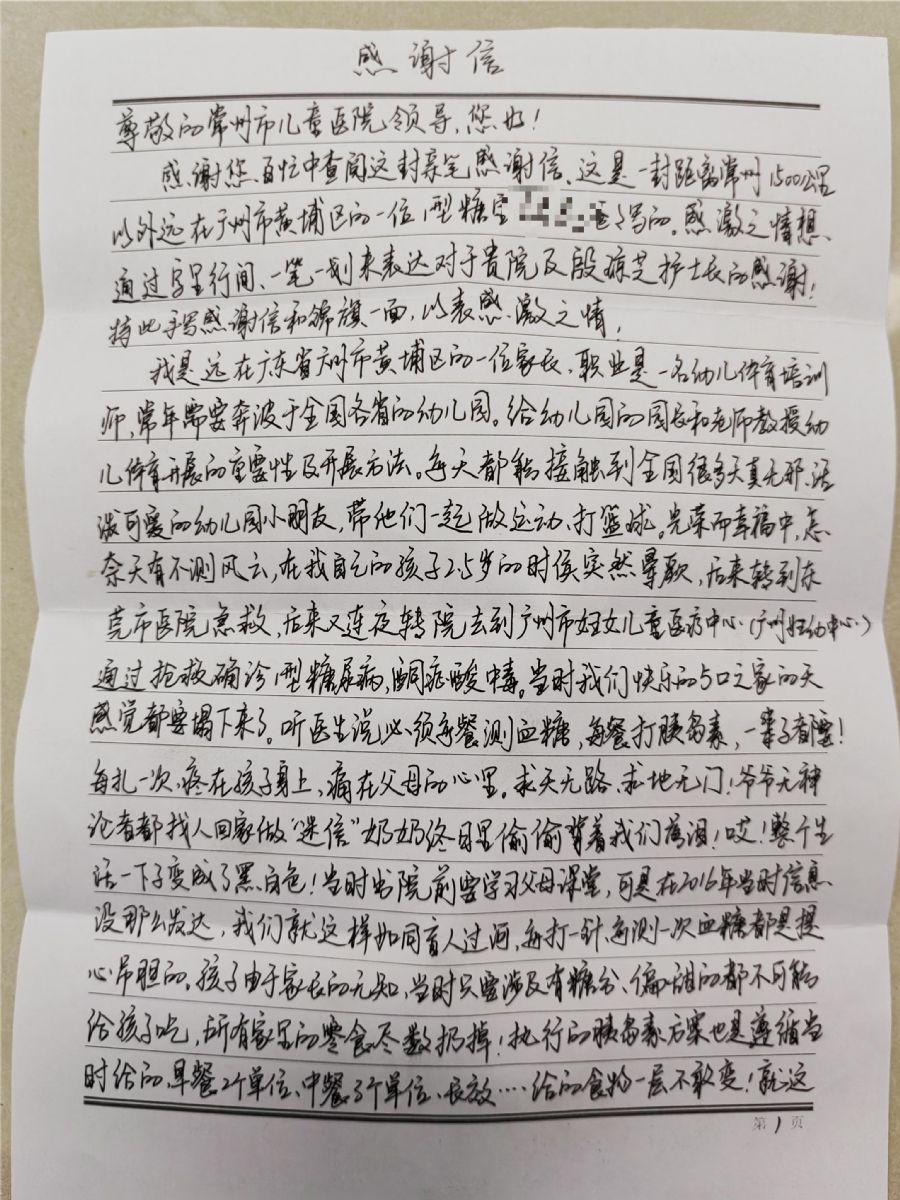 感谢信
尊敬的常州市儿童医院领导,您好!
感谢您百忙中查阅这封亲笔感谢信、这是一封距离常州1500公里
以外远在广州市黄埔区的一位1型糖写的。感激之情想
通过字里行间、一笔一划来表达对于贵院及殷琼芝护士长的感谢!
特此手写感谢信和锦旗一面,以表感激之情!
我是远在广东省广州市黄埔区的一位家长,职业是一名幼儿体育培训
师,常年需要奔波于全国各省的幼儿园。给幼儿园的园长和老师教授幼
儿体育开展的重要性及开展方法。每天都能接触到全国很多天真无邪、活
泼可爱的幼儿园小朋友,带他们一起做运动、打篮球。光荣而幸福中,怎
奈天有不测风云,在我自己的孩子2.5岁的时侯突然晕厥,后来转到东
莞市医院急救,后来又连夜转院去到广州市妇女儿童医疗中心(广州妇幼中心)
通过抢救确诊1型糖尿病,酮症酸中毒。当时我们快乐的5口之家的天
感觉都要塌下来了。听医生说必须每餐测血糖,每餐打胰岛素,一辈子都要!
每扎一次,疼在孩子身上,痛在父母的心里。求天无路、求地无门!爷爷无神
论者都找人回家做“迷信”奶奶终日里偷偷背着我们落泪!哎!整个生
活一下子变成了黑白色!当时出院前要学习父母课堂,可是在2016年当时信息
没那么发达,我们就这样如同盲人过河,每打一针,每测一次血糖都是提
心吊胆的。孩子由于家长的无知,当时只要涉及有糖分、偏甜的都不可能
给孩子吃,所有家里的零食尽数扔掉!执行的胰岛素方案也是遵循当
时给的,早餐2个单位、中餐3个单位、长效····给的食物一层不敢变!就这
第1页